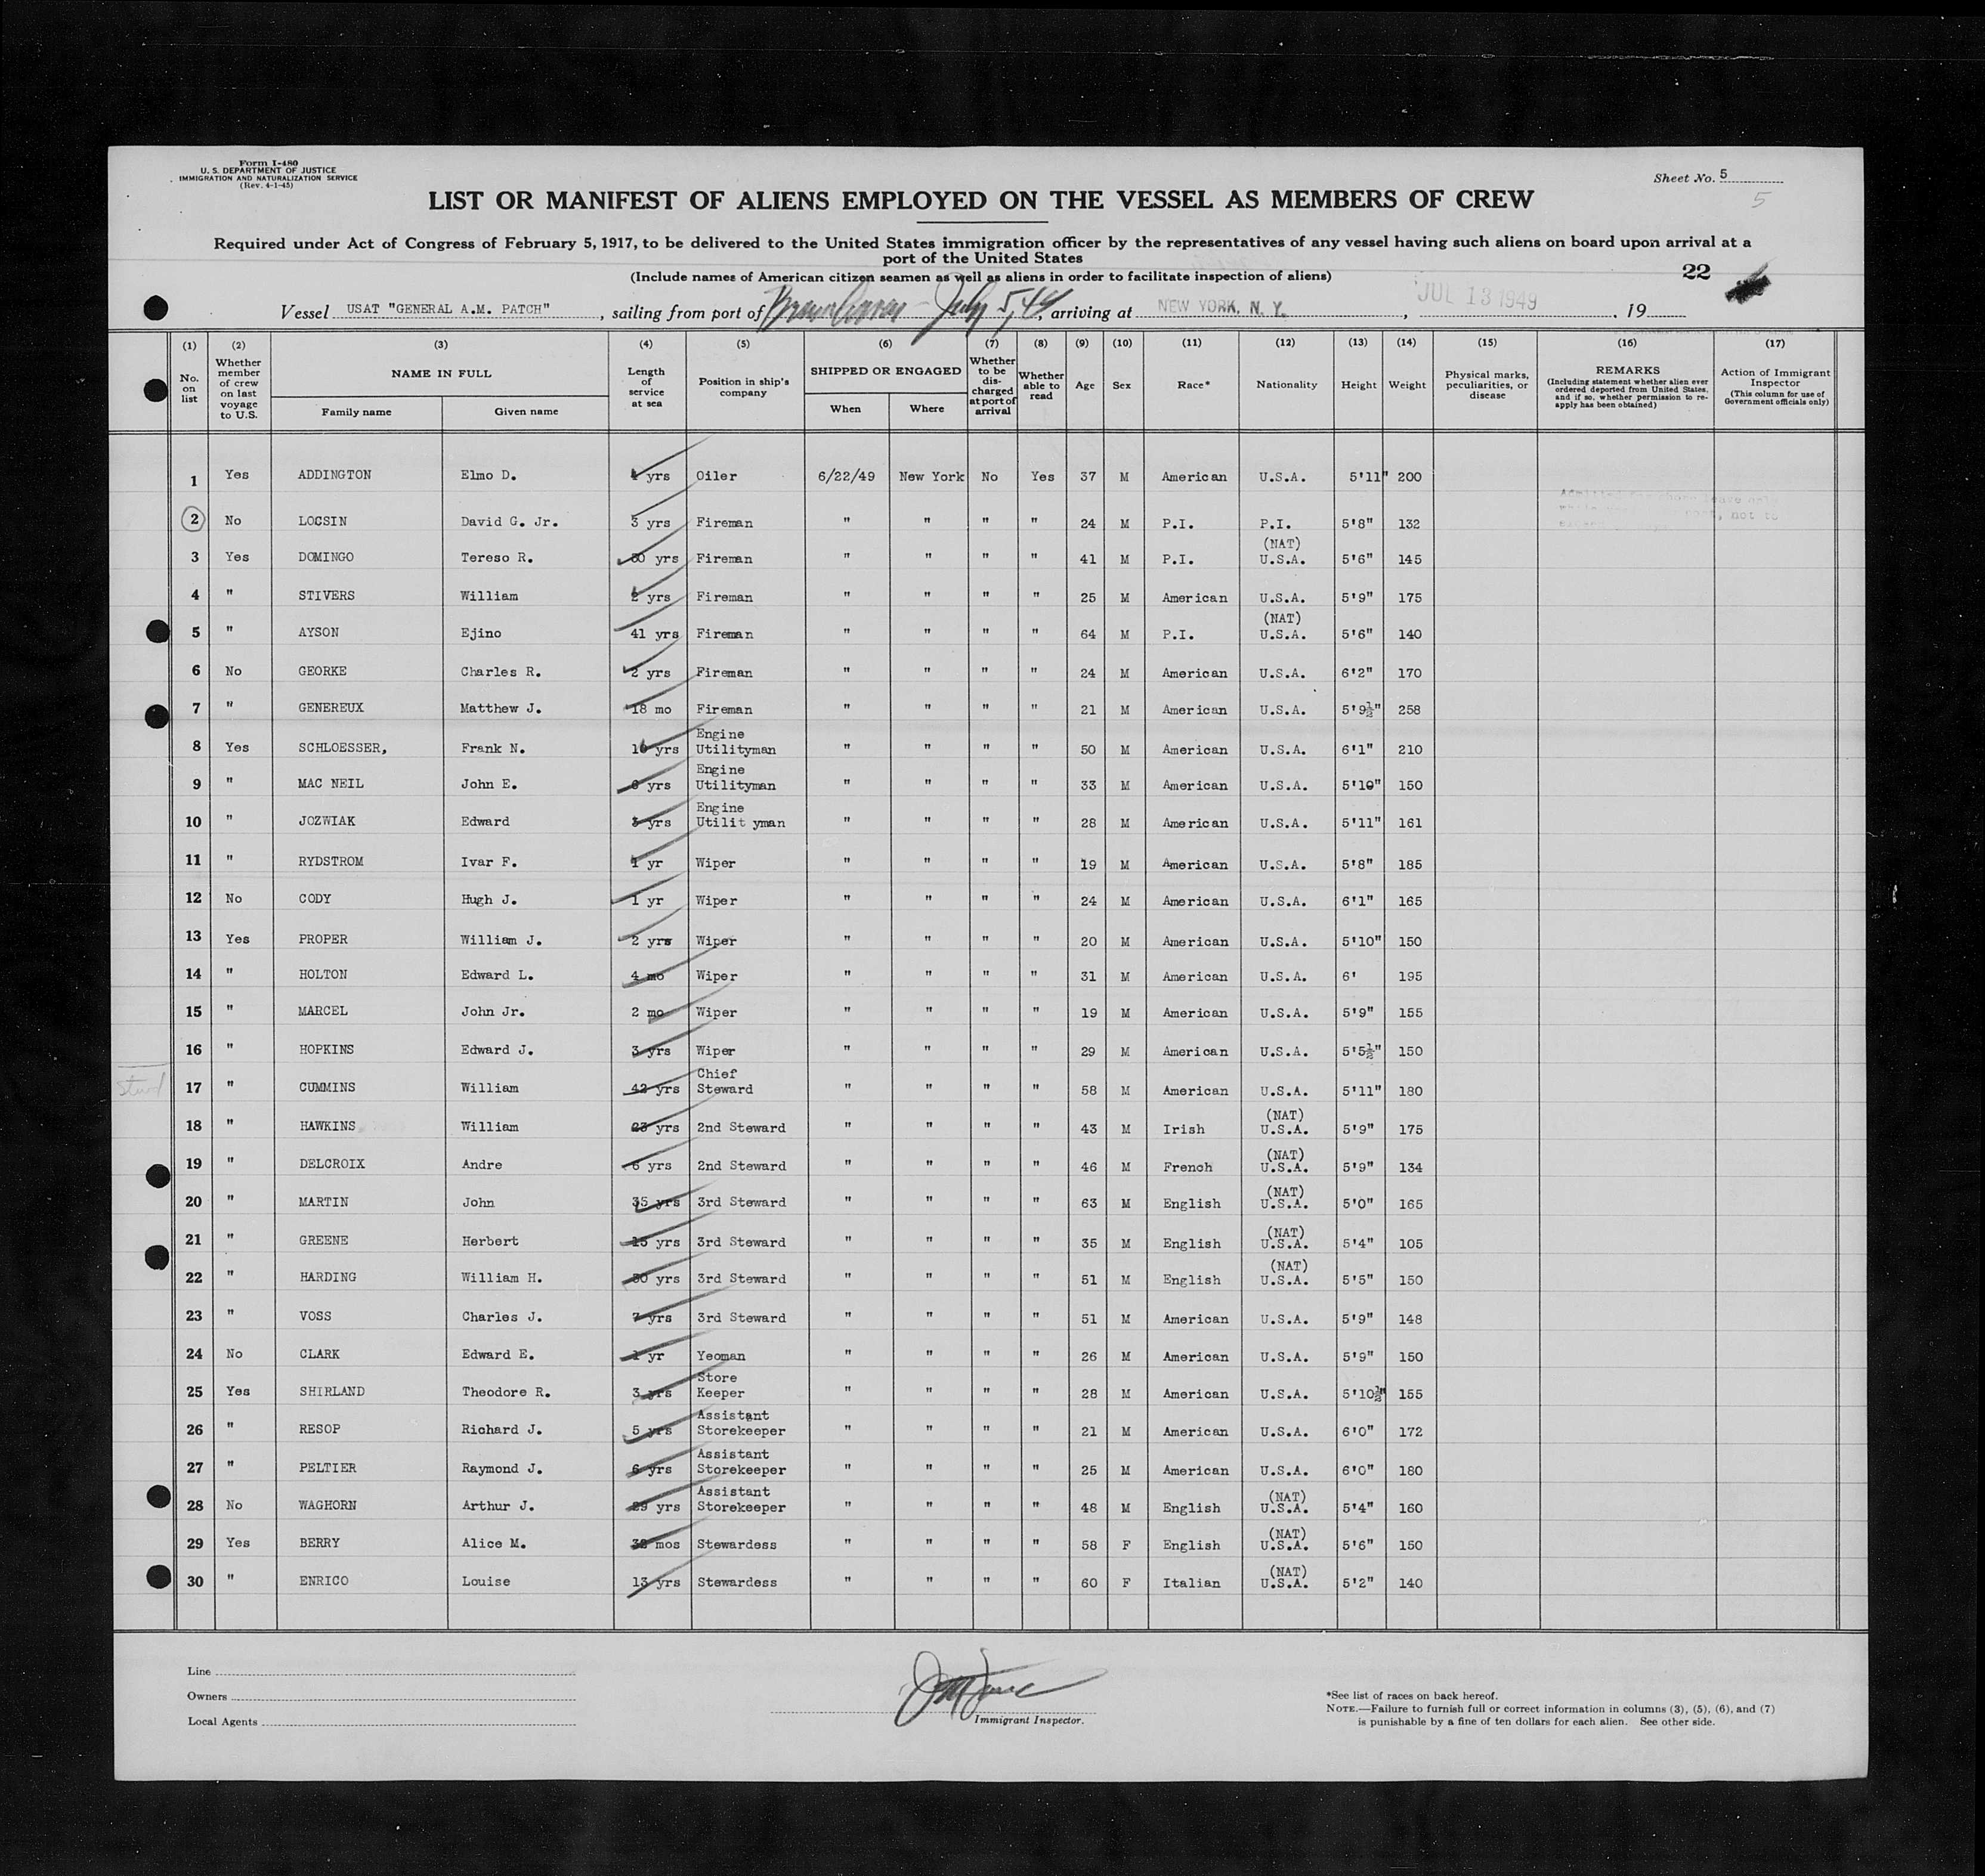 Form I-480
U. S. DEPARTMENT OF JUSTICE
IMMIGRATION AND NATURALIZATION SERVICE
(Rev. 4-1-45)
Sheet No. 5
5
LIST OR MANIFEST OF ALIENS EMPLOYED ON THE VESSEL AS MEMBERS OF CREW
Required under Act of Congress of February 5, 1917, to be delivered to the United States immigration officer by the representatives of any vessel having such aliens on board upon arrival at a
port of the United States
(Include names of American citizen seamen as well as aliens in order to facilitate inspection of aliens)
22
Vessel USAT "GENERAL A.M. PATCH", sailing from port of July 5, 49, arriving at NEW YORK, N. Y., JUL 13 1949, 19
(1) (2) (3) (4) (5) (6) (7) (8) (9) (10) (11) (12) (13) (14) (15) (16) (17)
No. on list
Whether member of crew on last voyage to U.S.
NAME IN FULL
Family name Given name
Length of service at sea
Position in ship's company
SHIPPED OR ENGAGED
When Where
Whether to be discharged at port of arrival
Whether able to read
Age Sex Race* Nationality Height Weight
Physical marks, peculiarities, or disease
REMARKS
(Including statement whether alien ever ordered deported from United States, and if so, whether permission to re-apply has been obtained)
Action of Immigrant Inspector
(This column for use of Government officials only)
1 Yes ADDINGTON Elmo D. yrs Oiler 6/22/49 New York No Yes 37 M American U.S.A. 5'11" 200
2 No LOCSIN David G. Jr. 3 yrs Fireman " " " " 24 M P.I. P.I. 5'8" 132
3 Yes DOMINGO Tereso R. yrs Fireman " " " " 41 M P.I. (NAT) U.S.A. 5'6" 145
4 " STIVERS William 2 yrs Fireman " " " " 25 M American U.S.A. 5'9" 175
5 " AYSON Ejino 41 yrs Fireman " " " " 64 M P.I. (NAT) U.S.A. 5'6" 140
6 No GEORKE Charles R. 2 yrs Fireman " " " " 24 M American U.S.A. 6'2" 170
7 " GENEREUX Matthew J. 18 mo Fireman " " " " 21 M American U.S.A. 5'9½" 258
8 Yes SCHLOESSER, Frank N. yrs Engine Utilityman " " " " 50 M American U.S.A. 6'1" 210
9 " MAC NEIL John E. yrs Engine Utilityman " " " " 33 M American U.S.A. 5'10" 150
10 " JOZWIAK Edward yrs Engine Utilit yman " " " " 28 M American U.S.A. 5'11" 161
11 " RYDSTROM Ivar F. 1 yr Wiper " " " " 19 M American U.S.A. 5'8" 185
12 No CODY Hugh J. 1 yr Wiper " " " " 24 M American U.S.A. 6'1" 165
13 Yes PROPER William J. 2 yrs Wiper " " " " 20 M American U.S.A. 5'10" 150
14 " HOLTON Edward L. 4 mo Wiper " " " " 31 M American U.S.A. 6' 195
15 " MARCEL John Jr. 2 mo Wiper " " " " 19 M American U.S.A. 5'9" 155
16 " HOPKINS Edward J. 3 yrs Wiper " " " " 29 M American U.S.A. 5'5½" 150
17 " CUMMINS William 42 yrs Chief Steward " " " " 58 M American U.S.A. 5'11" 180
18 " HAWKINS William 23 yrs 2nd Steward " " " " 43 M Irish (NAT) U.S.A. 5'9" 175
19 " DELCROIX Andre 6 yrs 2nd Steward " " " " 46 M French (NAT) U.S.A. 5'9" 134
20 " MARTIN John 35 yrs 3rd Steward " " " " 63 M English (NAT) U.S.A. 5'0" 165
21 " GREENE Herbert 15 yrs 3rd Steward " " " " 35 M English (NAT) U.S.A. 5'4" 105
22 " HARDING William H. 30 yrs 3rd Steward " " " " 51 M English (NAT) U.S.A. 5'5" 150
23 " VOSS Charles J. 7 yrs 3rd Steward " " " " 51 M American U.S.A. 5'9" 148
24 No CLARK Edward E. 1 yr Yeoman " " " " 26 M American U.S.A. 5'9" 150
25 Yes SHIRLAND Theodore R. 3 yrs Store Keeper " " " " 28 M American U.S.A. 5'10½" 155
26 " RESOP Richard J. 5 yrs Assistant Storekeeper " " " " 21 M American U.S.A. 6'0" 172
27 " PELTIER Raymond J. 6 yrs Assistant Storekeeper " " " " 25 M American U.S.A. 6'0" 180
28 No WAGHORN Arthur J. yrs Assistant Storekeeper " " " " 48 M English (NAT) U.S.A. 5'4" 160
29 Yes BERRY Alice M. mos Stewardess " " " " 58 F English (NAT) U.S.A. 5'6" 150
30 " ENRICO Louise 13 yrs Stewardess " " " " 60 F Italian (NAT) U.S.A. 5'2" 140
Line
Owners
Local Agents
Immigrant Inspector.
*See list of races on back hereof.
NOTE.—Failure to furnish full or correct information in columns (3), (5), (6), and (7)
is punishable by a fine of ten dollars for each alien. See other side.